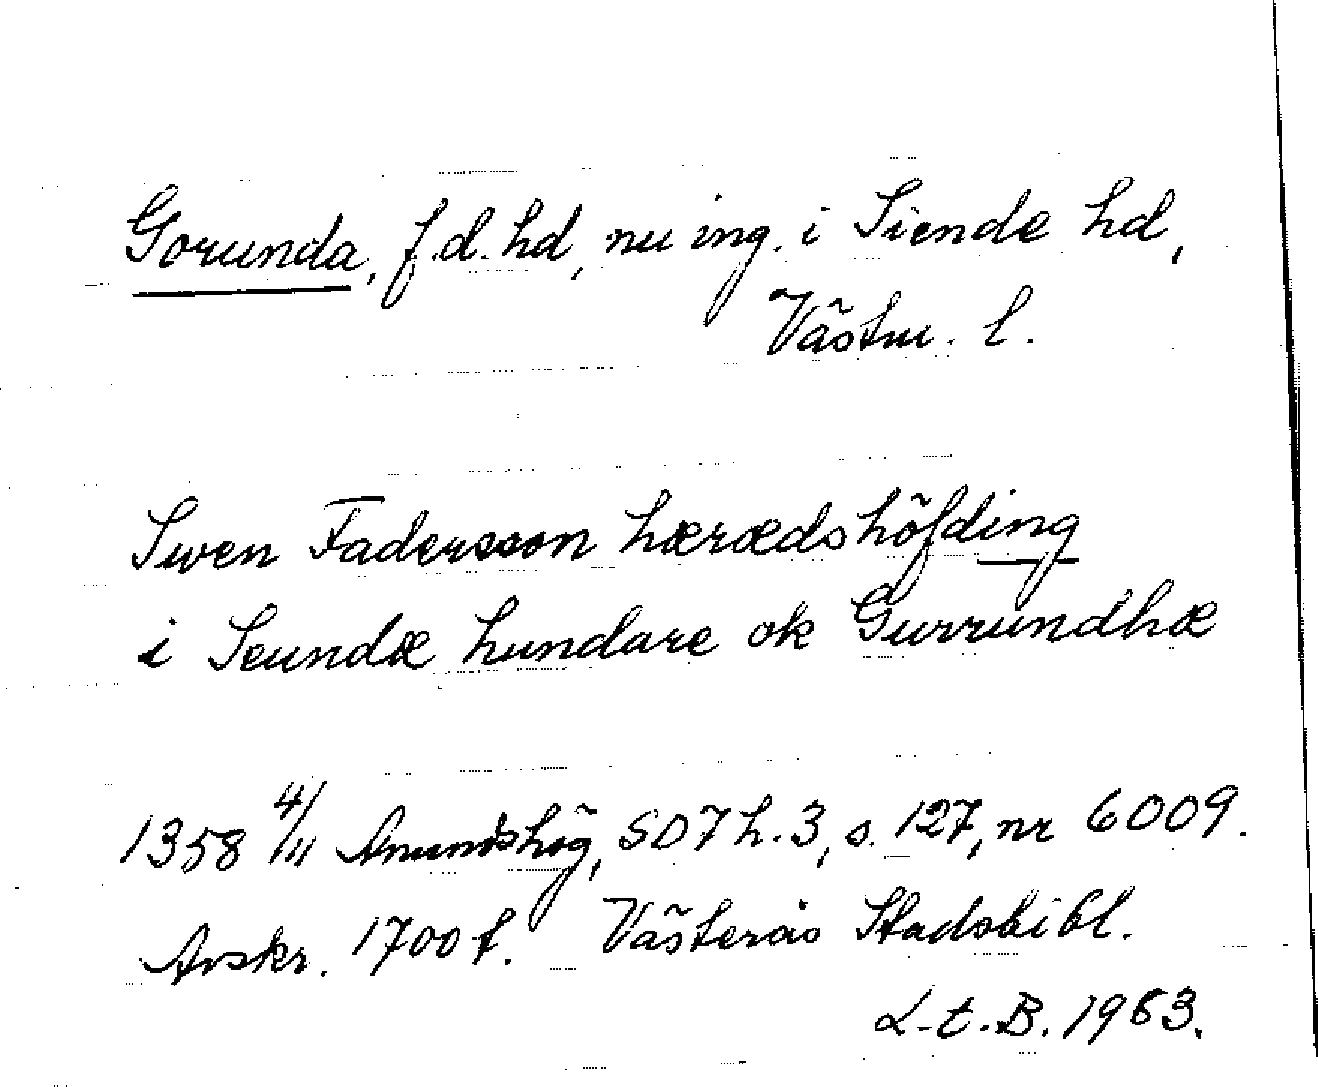 Gorunda, f.d. hd, nu ing. i Siende hd,
Västm. l.
Swen Fadersson hæræds höfding
i Seundæ hundare ok Gurrundhæ
1358 4/11 Anundshög, SD 7 h. 3, s. 127, nr 6009.
Avskr. 1700 t. Västerås Stadsbibl.
L-t. B. 1963.